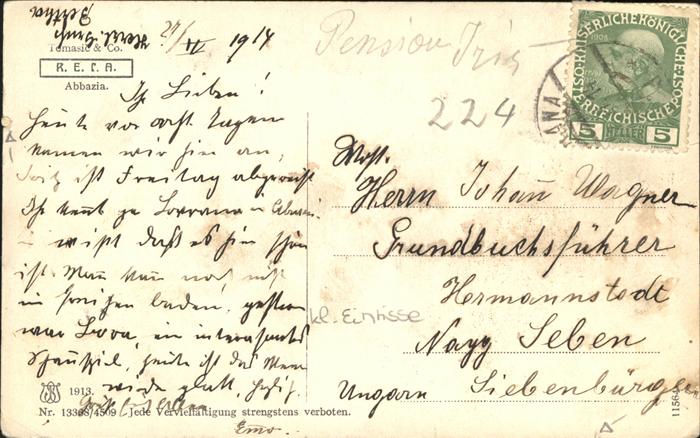 Herzl. Gruß
27/IV 1914
Tomasic & Co.
R.E.C.A.
Abbazia.
Pension Iris
224
KAISERLICHE KÖNIGLICHE
ÖSTERREICHISCHE POST
1908
5 HELLER 5
ANA
Ihr Lieben!
Heute vor acht Tagen
kamen wir hier an,
ist Freitag abgereist
Ihr kennt ja Lovrana
wißt daß es hier schön
ist. Man kann noch nicht
im baden, gestern
war Bora, ein interessantes
Schauspiel, heute ist das Meer
wieder glatt, herzl.
Emo.
Herrn Johann Wagner
Grundbuchsführer
Hermannstadt
Nagy Seben
Ungarn Siebenbürgen
kl. Einrisse
1913.
Nr. 13368/4509 Jede Vervielfältigung strengstens verboten.